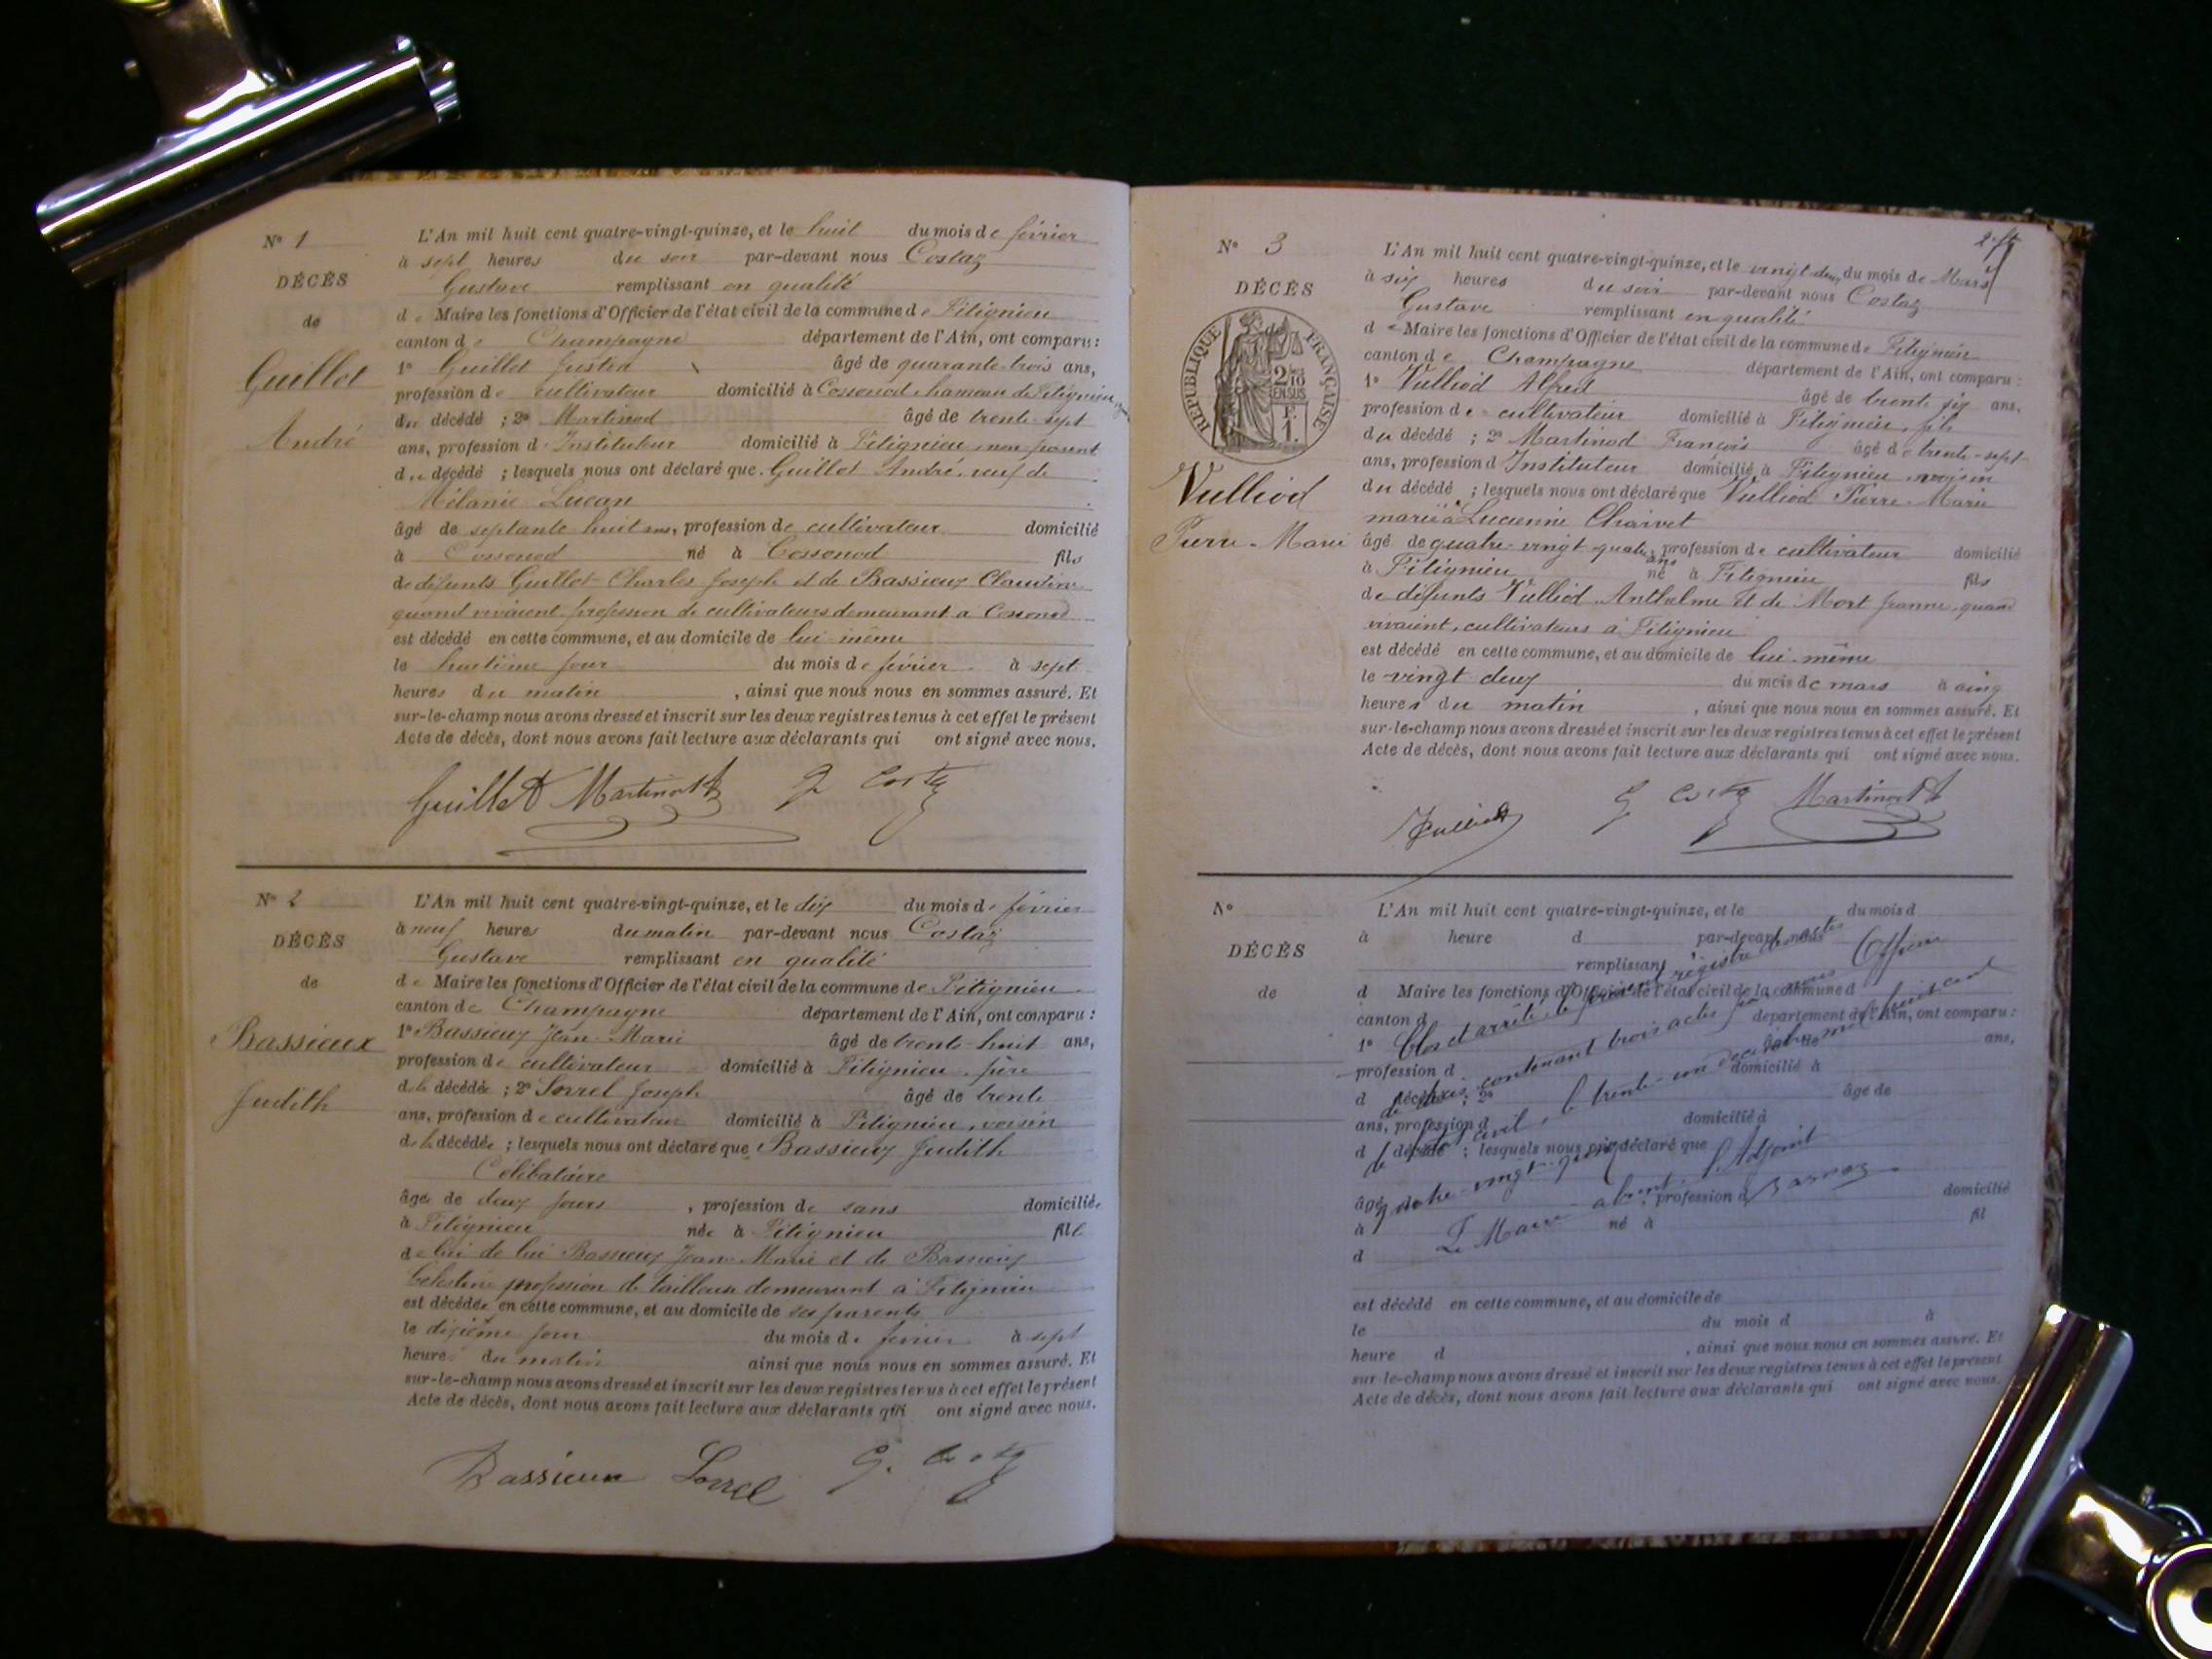 N° 1
DÉCÈS
de
Guillet
André
L'An mil huit cent quatre-vingt-quinze, et le huit du mois de février
à sept heures du soir par-devant nous Costaz
Gustave remplissant en qualité
de Maire les fonctions d'Officier de l'état civil de la commune de Fitignieu
canton de Champagne département de l'Ain, ont comparu :
1° Guillet Justin âgé de quarante-trois ans,
profession de cultivateur domicilié à Cossonod hameau de Fitignieu,
du décédé ; 2° Martinod âgé de trente-sept
ans, profession d'Instituteur domicilié à Fitignieu non parent
du décédé ; lesquels nous ont déclaré que Guillet André, veuf de
Mélanie Lucan
âgé de septante huit ans, profession de cultivateur domicilié
à Cossonod né à Cossonod fils
de défunts Guillet Charles Joseph et de Bassieux Claudine
quand vivaient profession de cultivateurs demeurant à Cossonod
est décédé en cette commune, et au domicile de lui-même
le huitième jour du mois de février à sept
heures du matin, ainsi que nous nous en sommes assuré. Et
sur-le-champ nous avons dressé et inscrit sur les deux registres tenus à cet effet le présent
Acte de décès, dont nous avons fait lecture aux déclarants qui ont signé avec nous.
Guillet Martinod G Costaz
N° 2
DÉCÈS
de
Bassieux
Judith
L'An mil huit cent quatre-vingt-quinze, et le dix du mois de février
à neuf heures du matin par-devant nous Costaz
Gustave remplissant en qualité
de Maire les fonctions d'Officier de l'état civil de la commune de Fitignieu
canton de Champagne département de l'Ain, ont comparu :
1° Bassieux Jean-Marie âgé de trente-huit ans,
profession de cultivateur domicilié à Fitignieu, père
de la décédée ; 2° Sorrel Joseph âgé de trente
ans, profession de cultivateur domicilié à Fitignieu, voisin
de la décédée ; lesquels nous ont déclaré que Bassieux Judith
Célibataire
âgée de deux jours, profession de sans domiciliée
à Fitignieu née à Fitignieu fille
de lui de lui Bassieux Jean-Marie et de Bassieux
Célestine profession de tailleur demeurant à Fitignieu
est décédée en cette commune, et au domicile de ses parents
le dixième jour du mois de février à sept
heures du matin ainsi que nous nous en sommes assuré. Et
sur-le-champ nous avons dressé et inscrit sur les deux registres tenus à cet effet le présent
Acte de décès, dont nous avons fait lecture aux déclarants qui ont signé avec nous.
Bassieux Sorrel G. Costaz
N° 3
DÉCÈS
de
RÉPUBLIQUE FRANÇAISE
2/10 EN SUS
Vulliod
Pierre-Marie
L'An mil huit cent quatre-vingt-quinze, et le vingt-deux du mois de Mars
à six heures du soir par-devant nous Costaz
Gustave remplissant en qualité
de Maire les fonctions d'Officier de l'état civil de la commune de Fitignieu
canton de Champagne département de l'Ain, ont comparu :
1° Vulliod Alfred âgé de trente six ans,
profession de cultivateur domicilié à Fitignieu, fils
du décédé ; 2° Martinod François âgé de trente-sept
ans, profession d'Instituteur domicilié à Fitignieu, voisin
du décédé ; lesquels nous ont déclaré que Vulliod Pierre-Marie
marié à Lucienne Chaivet
âgé de quatre-vingt-quatre ans, profession de cultivateur domicilié
à Fitignieu né à Fitignieu fils
de défunts Vulliod Anthelme et de Mort Jeanne, quand
vivaient, cultivateurs à Fitignieu
est décédé en cette commune, et au domicile de lui-même
le vingt deux du mois de mars à cinq
heures du matin, ainsi que nous nous en sommes assuré. Et
sur-le-champ nous avons dressé et inscrit sur les deux registres tenus à cet effet le présent
Acte de décès, dont nous avons fait lecture aux déclarants qui ont signé avec nous.
Vulliod G Costaz Martinod
N°
DÉCÈS
de
L'An mil huit cent quatre-vingt-quinze, et le du mois d
à heure d par-devant nous
remplissant
d Maire les fonctions d'Officier de l'état civil de la commune d
canton d département de l'Ain, ont comparu :
1° âgé de ans,
profession d domicilié à
d décédé ; 2° âgé de
ans, profession d domicilié à
d décédé ; lesquels nous ont déclaré que
âgé , profession d domicilié
à né à fil
d
est décédé en cette commune, et au domicile de
le du mois d à
heure d , ainsi que nous nous en sommes assuré. Et
sur-le-champ nous avons dressé et inscrit sur les deux registres tenus à cet effet le présent
Acte de décès, dont nous avons fait lecture aux déclarants qui ont signé avec nous.
Clos et arrêté le présent registre des actes
de décès, contenant trois actes par nous Officier
de l'état civil, le trente-un décembre mil huit cent
quatre-vingt-quinze
Le Maire absent, l'Adjoint